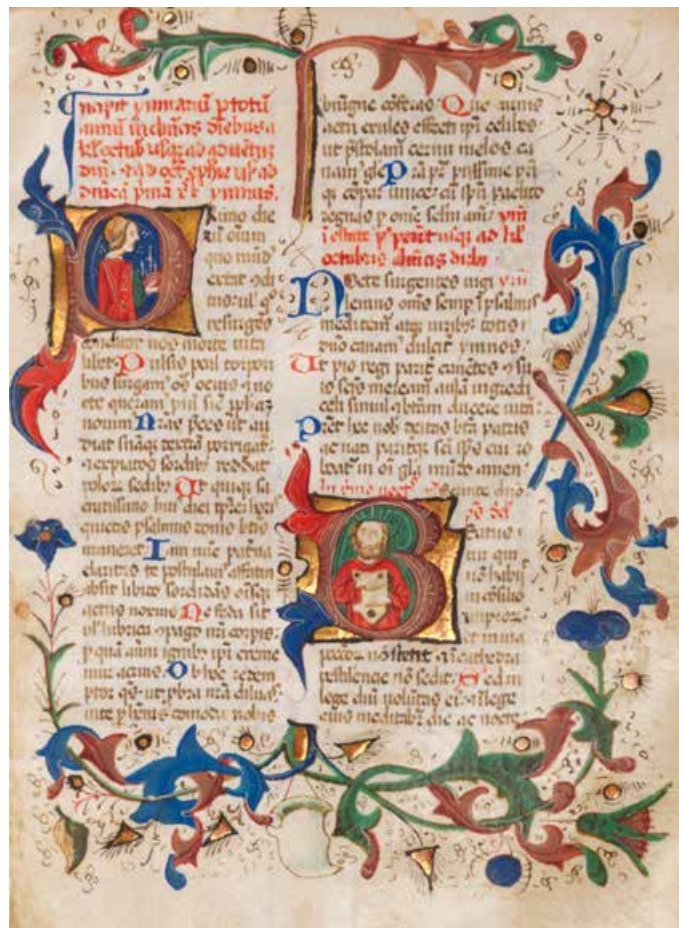 ncipit ymnariu p totu
annu in dnicis diebus a
kl octub usq ad aduetu
dni & ad oct epphie usq ad
dnica prima xl ymnus.
Primo die
ru oium
quo mud
extat odi
tus ul q
resurges
conditor nos morte uicta
liberet Pulsis pcul torpori
bus surgam oes ocius & no
cte queram piu sic pphaz
nouim Nras pces ut au
diat suaq dextera porrigat
& expiatos sordib reddat
polor sedib Ut quiq sa
cratissimo hui diei tpre hor
quietis psalmim donis btis
muneret Iam nuc paterna
claritas te postulam affatim
absit libido sordidas oisq
actus noxius Ne feda sit
ul lubrica opago nri corpis
p qua auerni ignib ipi creme
mur acrius Ob hoc redem
ptor qs ut pbra nra diluas
uite phenis comoda nobis
benigne coferas Que carnis
actu exules effecti ipi celibes
ut pstolam cernui melos ca
nam gle Pra pr piissime pri
q copar unice cu spu paclito
regnas p one sclm am ymn
i estate p pent usq ad kl
octubris dnicis dieb
Nocte surgentes uigi ym
lemus oms semp i psalmis
meditem atq uirib totis
dno canam dulcit ymnos
Ut pio regi parit canetes cu su
is scis meream aula ingredi
celi simul & btam ducere uita
Pret hoc nob deitas bta patris
ac nati pariterq sci sps cui re
boat in oi gla mudo amen
Beatus
uir qui
no habijt
in cosilio
impior
& in uia
pccor no stetit & i cathedra
pestilencie no sedit Sed in
lege dni voluntas ei & i lege
eius meditabit die ac nocte